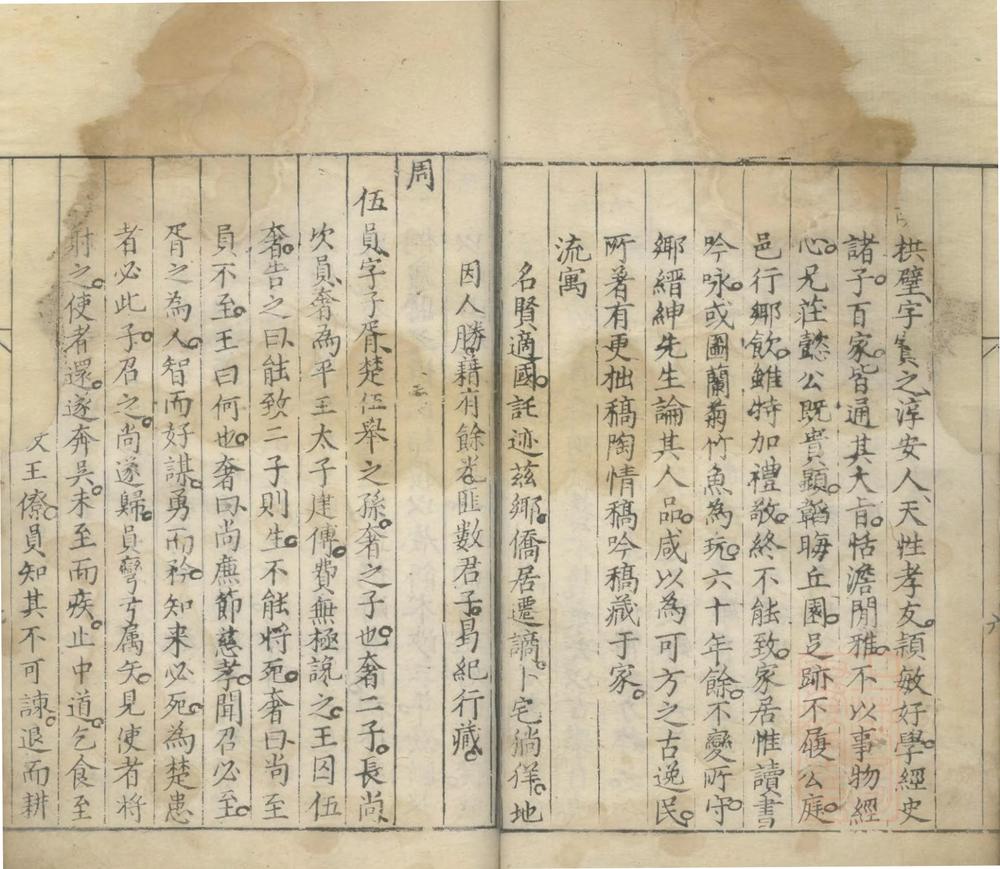 栱璧字賓之淳安人天性孝友穎敏好學經史
諸子百家皆通其大旨恬澹閒雅不以事物經
心兄莊懿公既貴顯韜晦丘園足跡不履公庭
邑行鄉飲雖特加禮敬終不能致家居惟讀書
吟咏或圖蘭菊竹魚為玩六十年餘不變所守
鄉縉紳先生論其人品咸以為可方之古逸民
所著有更拙稿陶情稿吟稿藏于家
流寓
名賢適國託迹茲鄉僑居遷謫卜宅徜徉地
因人勝藉有餘光匪數君子曷紀行藏
周
伍員字子胥楚伍舉之孫奢之子也奢二子長尚
次員奢為平王太子建傅費無極讒之王囚伍
奢告之曰能致二子則生不能將死奢曰尚至
員不至王曰何也奢曰尚廉節慈孝聞召必至
胥之為人智而好謀勇而矜知来必死為楚患
者必此子召之尚遂歸員彎弓属矢見使者將
射之使者還遂奔吳未至而疾止中道乞食至
王僚員知其不可諫退而耕